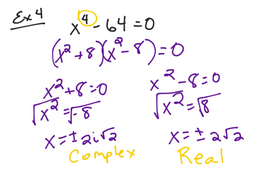 Ex 4
x⁴ - 64 = 0
(x² + 8)(x² - 8) = 0
x² + 8 = 0
√x² = √-8
x = ± 2i√2
Complex
x² - 8 = 0
√x² = √8
x = ± 2√2
Real